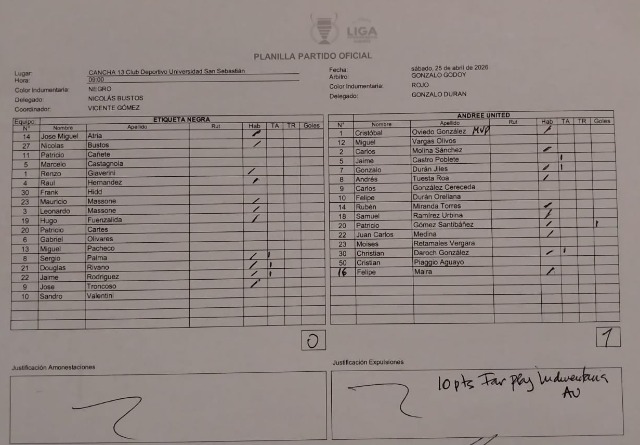 LIGA
PLANILLA PARTIDO OFICIAL
Lugar: CANCHA 13 Club Deportivo Universidad San Sebastián
Hora: 09:00
Color Indumentaria: NEGRO
Delegado: NICOLÁS BUSTOS
Coordinador: VICENTE GÓMEZ
Fecha: sábado, 25 de abril de 2026
Arbitro: GONZALO GODOY
Color Indumentaria: ROJO
Delegado: GONZALO DURAN
Equipo: ETIQUETA NEGRA
N° Nombre Apellido Rut Hab TA TR Goles
14 Jose Miguel Atria
27 Nicolas Bustos
11 Patricio Cañete
5 Marcelo Castagnola
1 Renzo Giaverini
4 Raul Hernandez
30 Frank Hidd
23 Mauricio Massone
3 Leonardo Massone
19 Hugo Fuenzalida
20 Patricio Cartes
6 Gabriel Olivares
13 Miguel Pacheco
8 Sergio Palma
21 Douglas Rivano
22 Jaime Rodriguez
9 Jose Troncoso
10 Sandro Valentini
0
ANDREE UNITED
N° Nombre Apellido Rut Hab TA TR Goles
1 Cristóbal Oviedo González MVP
12 Miguel Vargas Olivos
2 Carlos Molina Sánchez
5 Jaime Castro Poblete
7 Gonzalo Durán Jiles
8 Andrés Tuesta Roa
9 Carlos González Cereceda
10 Felipe Durán Orellana
14 Rubén Miranda Torres
18 Samuel Ramírez Urbina
20 Patricio Gómez Santibáñez
22 Juan Carlos Medina
23 Moises Retamales Vergara
30 Christian Daroch González
50 Cristian Piaggio Aguayo
16 Felipe Maira
1
Justificación Amonestaciones
Justificación Expulsiones
10 pts Fair play indumentaria
AU